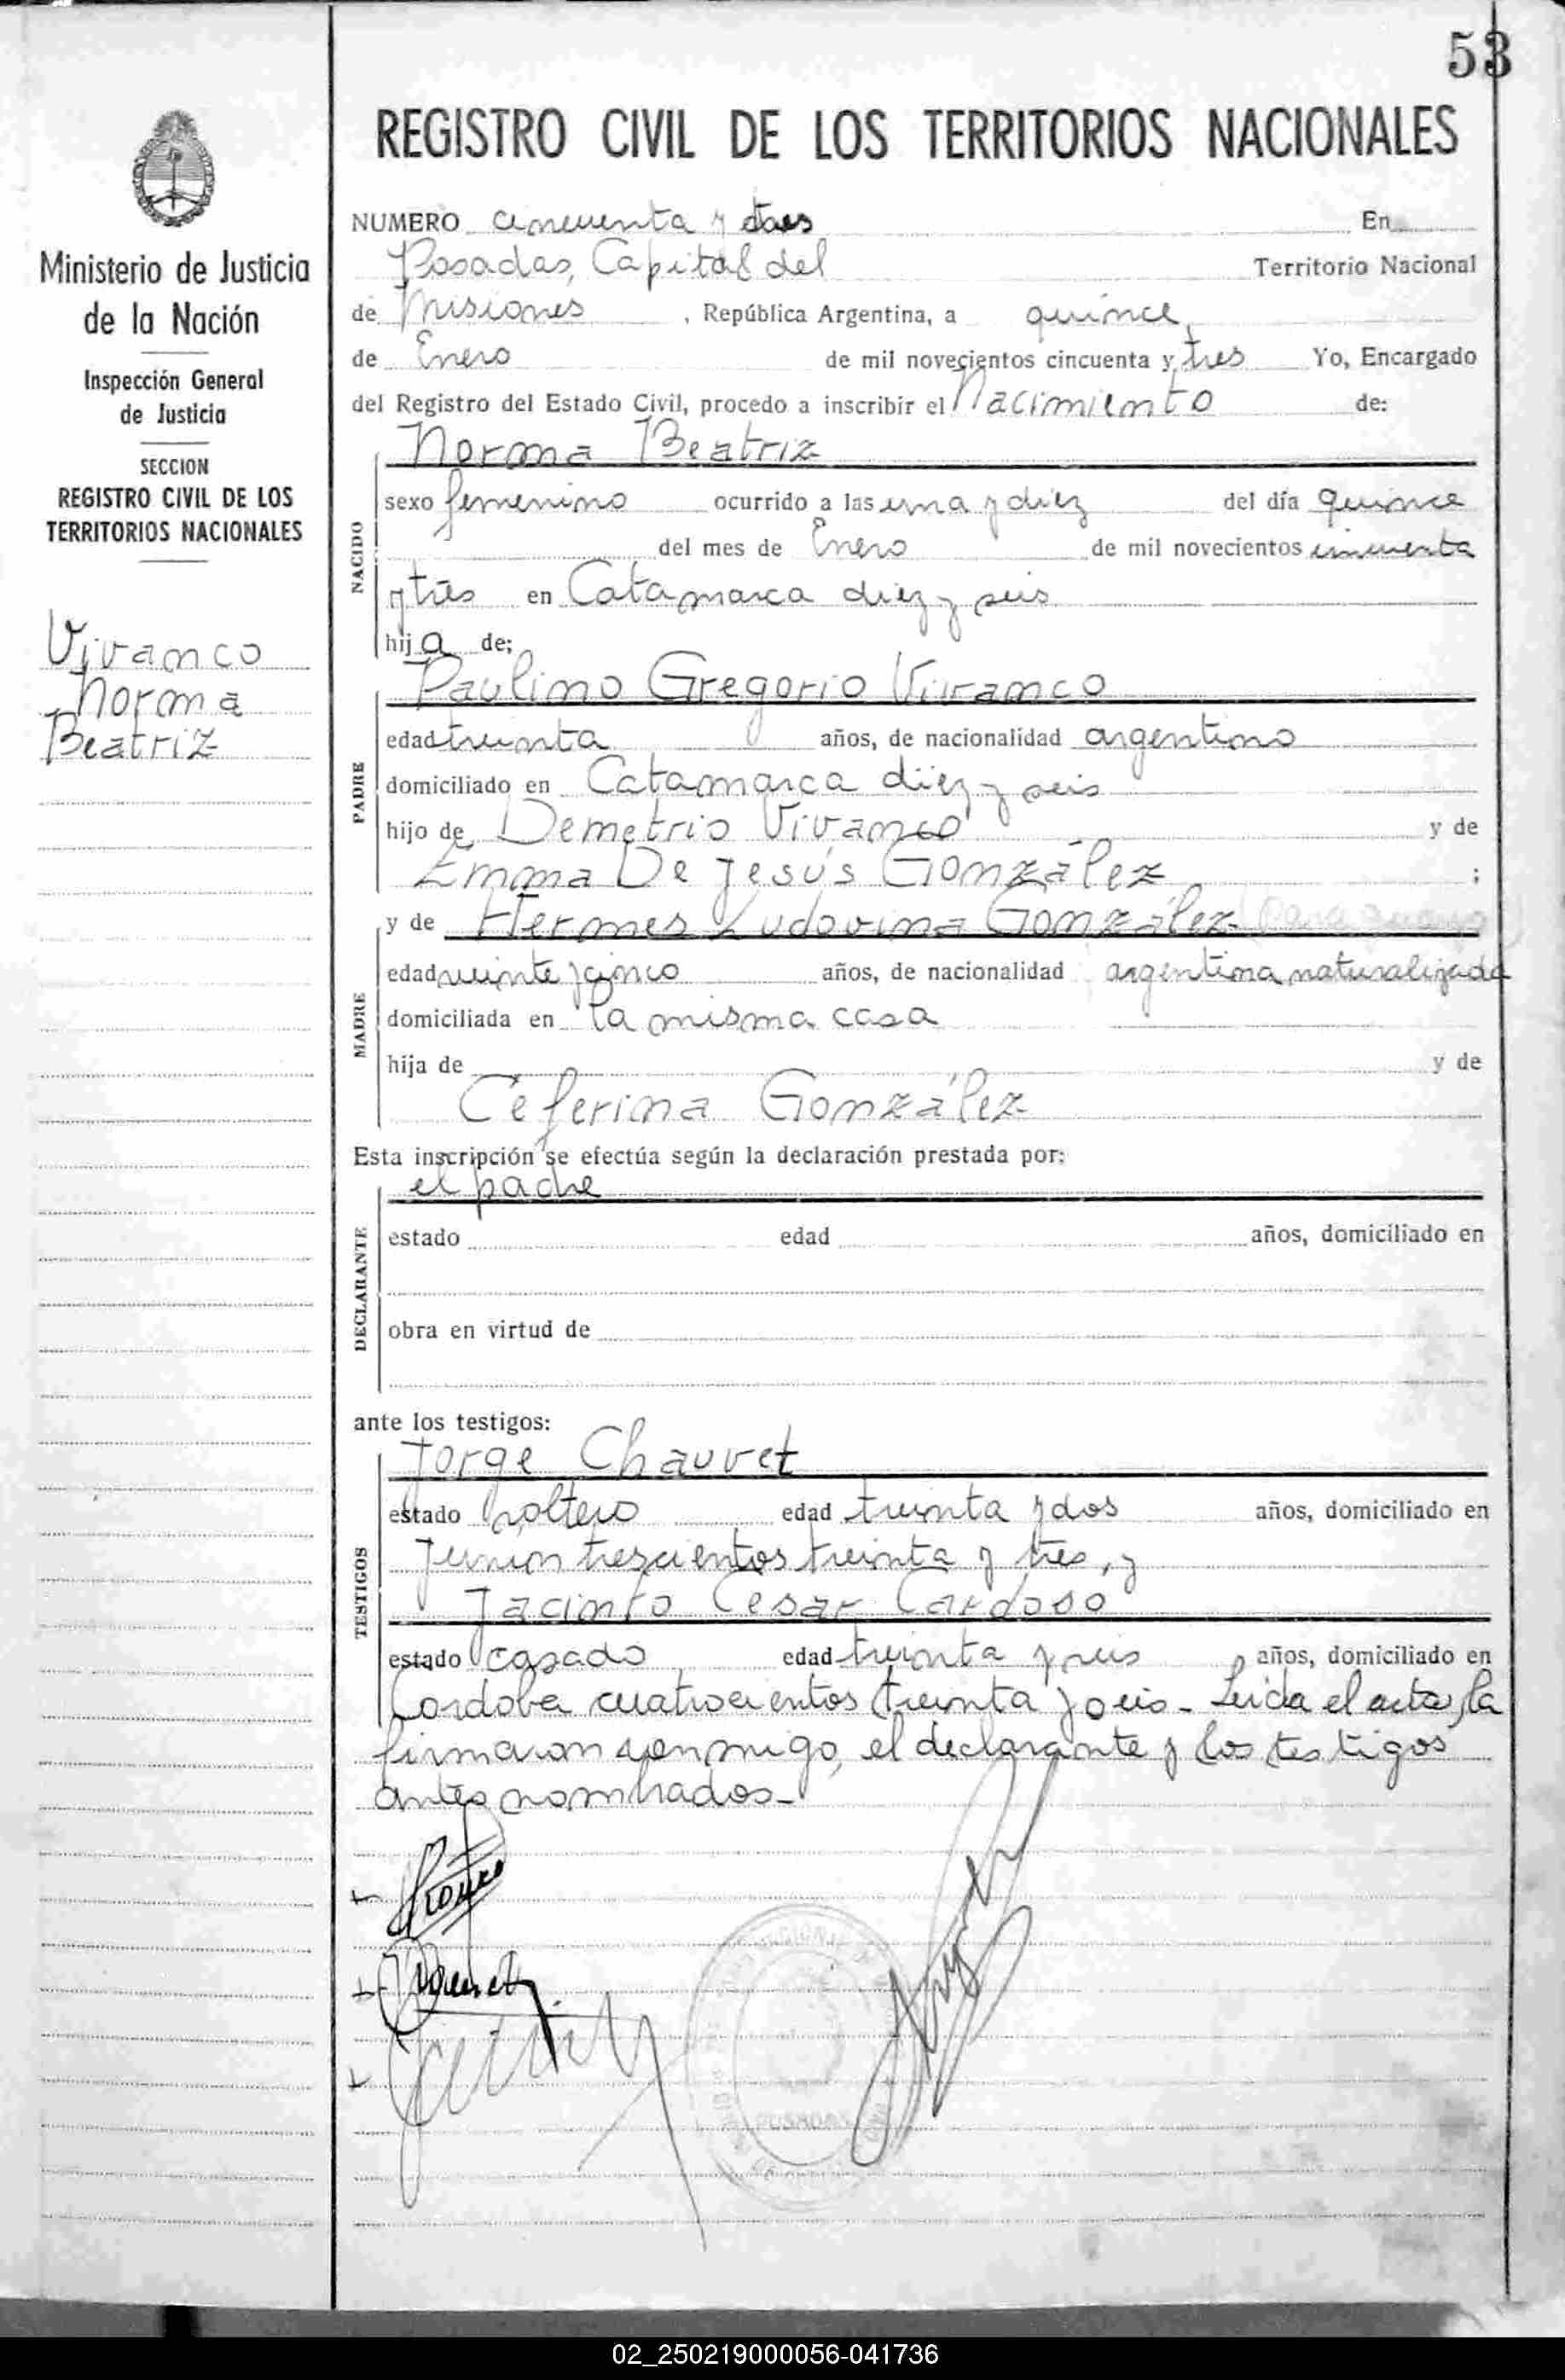 53
REGISTRO CIVIL DE LOS TERRITORIOS NACIONALES
Ministerio de Justicia
de la Nación
Inspección General
de Justicia
SECCION
REGISTRO CIVIL DE LOS
TERRITORIOS NACIONALES
Vivanco
Norma
Beatriz
NUMERO cincuenta y En
Posadas, Capital del Territorio Nacional
de Misiones, República Argentina, a quince,
de Enero de mil novecientos cincuenta y tres Yo, Encargado
del Registro del Estado Civil, procedo a inscribir el Nacimiento de:
NACIDO
Norma Beatriz
sexo femenino ocurrido a las una y diez del día quince
del mes de Enero de mil novecientos cincuenta
y tres en Catamarca diez y seis
hija de:
PADRE
Paulino Gregorio Vivanco
edad treinta años, de nacionalidad argentino
domiciliado en Catamarca diez y seis
hijo de Demetrio Vivanco y de
Emma De Jesús González ;
MADRE
y de Hermes Ludovina González (paraguaya)
edad veinte y cinco años, de nacionalidad argentina naturalizada
domiciliada en la misma casa
hija de y de
Ceferina González
Esta inscripción se efectúa según la declaración prestada por:
DECLARANTE
el padre
estado edad años, domiciliado en
obra en virtud de
ante los testigos:
TESTIGOS
Jorge Chauvet
estado soltero edad treinta y dos años, domiciliado en
Junin trescientos treinta y tres, y
Jacinto Cesar Cardoso
estado casado edad treinta y seis años, domiciliado en
Cordoba cuatrocientos treinta y seis - Leida el acta, la
firmaron conmigo, el declarante y los testigos
antes nombrados -
POSADAS
02_250219000056-041736